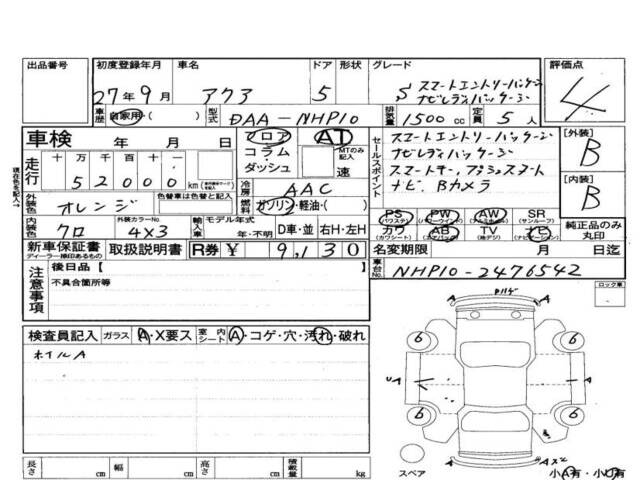 出品番号 初度登録年月 車名 ドア 形状 グレード 評価点
27年9月 アクア 5 S スマートエントリーパッケージ
ナビレディパッケージ 4
車歴 自家用・( ) 型式 DAA-NHP10 排気量 1500cc 定員 5人
車検 年 月 日 フロア AT セールスポイント スマートエントリーパッケージ [外装]
コラム・ダッシュ MTのみ記入 速 ナビレディパッケージ B
現在色を記入→ 走行 十万千百十一 52000km スマートキー、プッシュスタート
冷房 AAC ナビ、Bカメラ [内装]
外装色 オレンジ 色替車は色替と記入 燃料 ガソリン・軽油・( ) B
PS (パワステ) PW (パワーウインド) AW (アルミホイール) SR (サンルーフ)
内装色 クロ 外装カラーNo. 4X3 輸入車 モデル年式 年・不明 D車・並 右H・左H
カワ (カワシート) AB (エアバッグ) TV (地デジ) ナビ 純正品のみ丸印
新車保証書 ディーラー捺印あるもの 取扱説明書 R券 ¥ 9,130 名変期限 月 日迄
注意事項 後日品【 】 車台No. NHP10-2476542
不具合箇所等 ロック車
検査員記入 ガラス A・X要ス 室内シート A・コゲ・穴・汚れ・破れ
ホイルA
A A
6 6
UA A
6 6
A AX2
スペア 小A有・小U有
長さ cm 幅 cm 高さ cm 積載量 kg